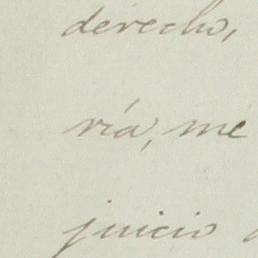 derecho,
ría, me
juicio